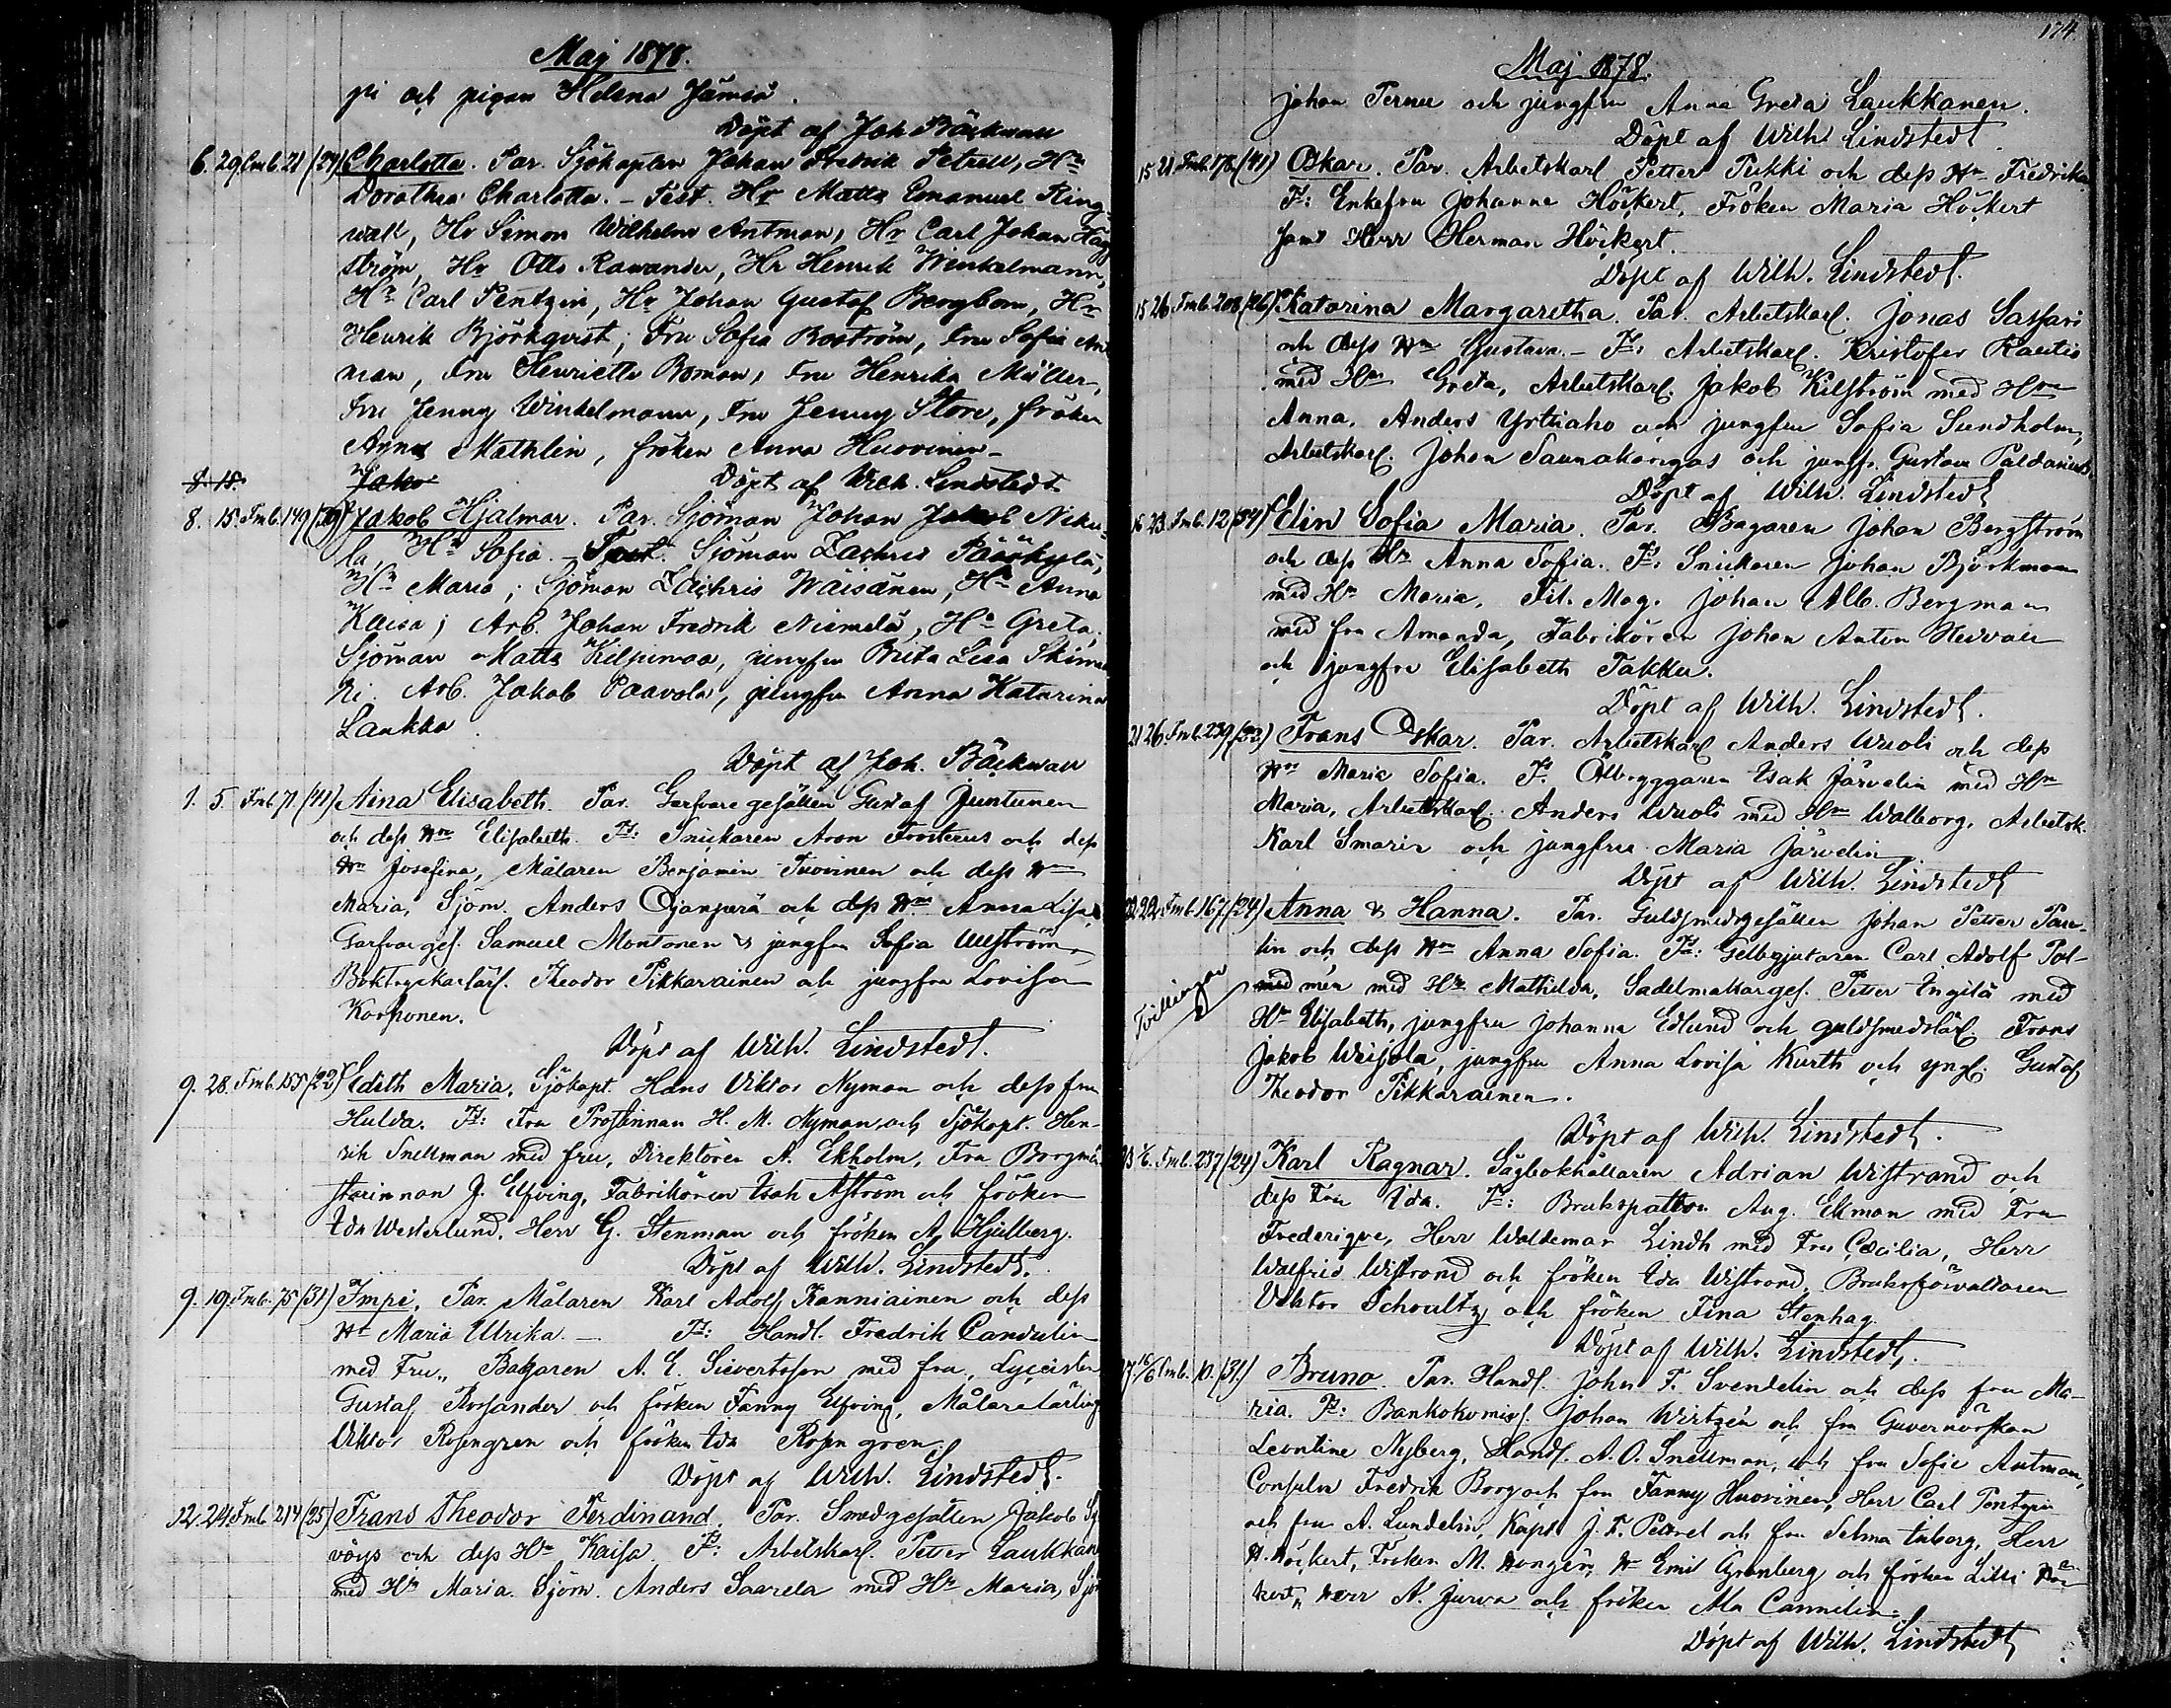 Maj 1878.
pi och pigan Helena Jämiä.
Döpt af Joh. Bäckman
6. 29. Fmb. 21 (24) Charlotta. Par. Sjökapten Johan Fredrik Petrell, Hn
Dorothea Charlotta. – Test. Hr Matts Emanuel Ring-
wall, Hr Simon Wilhelm Antman, Hr Carl Johan Hägg-
ström, Hr Otto Rawander, Hr Henrik Winkelmann,
Hr Carl Pentzin, Hr Johan Gustaf Bergbom, Hr
Henrik Björkqvist; Fru Sofia Boström, Fru Sofia Ant
man, Fru Henriette Roman, Fru Henrika Müller,
Fru Jenny Winkelmann, Fru Jenny Store, fröken
Anna Mathlin, fröken Anna Huovinen –
8. 18. Jako Döpt af Wilh. Lindstedt
8. 15. Fmb. 149 (29) Jakob Hjalmar. Par. Sjöman Johan Jakob Niku-
la, Hn Sofia. – Test. Sjöman Zachris Pääkylä,
Hn Maria; Sjöman Zachris Wäisänen, Hn Anna
Kaisa; Arb. Johan Fredrik Niemelä, Hn Greta.
Sjöman Matts Kilpimaa, jungfru Brita Lisa
Arb. Jakob Paavola, jungfru Anna Katarina
Laukka.
Döpt af Joh. Bäckman
1. 5. Fmb. 71. (41) Aina Elisabeth. Par. Garfvaregesällen Gustaf Juntunen
och dess Hn Elisabeth. Ts: Snickaren Aron Frosterus och dess
Hn Josefina, Målaren Benjamin Tuovinen och dess Hn
Maria, Sjöm. Anders Ojanperä och dess Hn Anna Lisa,
Garfvarges. Samuel Montonen & jungfru Sofia Ullström,
Boktryckarlärl. Theodor Pikkarainen och jungfru Lovisa
Korhonen.
Döpt af Wilh. Lindstedt.
9. 28. Fmb. 155 (22) Edith Maria. Sjökapt. Hans Viktor Nyman och dess fru
Hulda. Ts: Fru Prostinnan H. M. Nyman och Sjökapt. Hen-
rik Snellman med fru, Direktören A. Ekholm, Fru Borgmä-
starinnan J. Elfving, Fabrikören Isak Aström och fröken
Ida Westerlund. Herr G. Stenman och fröken A. Hjulberg.
Döpt af Wilh. Lindstedt.
9. 19. Fmb. 75 (31) Impi. Par. Målaren Karl Adolf Kanniainen och dess
Hn Maria Ulrika. – Ts: Handl. Fredrik Candelin
med Fru, Bagaren A. E. Sievertsson med fru, Lyceisten
Gustaf Rosander och fröken Fanny Elfving, Målarelärling
Viktor Rosengren och fröken Ida Rosengren.
Döpt af Wilh. Lindstedt.
12. 24. Fmb. 214 (25) Frans Theodor Ferdinand. Par. Smedgesällen Jakob
och dess Hn Kaisa. Ts: Arbetskarl. Petter Laukkan
med Hn Maria. Sjöm. Anders Saarela med Hn Maria, Sjö
174.
Maj 1878.
Johan Pernu och jungfru Anna Greta Laukkanen.
Döpt af Wilh. Lindstedt.
15 21. Fmb. 178. (41) Oskar. Par. Arbetskarl Petter Pukki och dess Hn Fredrika
Ts: Enkefru Johanna Höckert, Fröken Maria Höckert
samt Herr Herman Höckert.
Döpt af Wilh. Lindstedt.
15 26. Fmb. 208. (26) Katarina Margaretha. Par. Arbetskarl. Jonas Sassari
och dess Hn Gustava. – Ts: Arbetskarl. Kristofer Rautio
med Hn Greta, Arbetskarl. Jakob Kilström med Hn
Anna. Anders Yrttiaho och jungfru Sofia Sundholm,
Arbetskarl. Johan Saunakangas och jungfr. Gustava Paldanius.
Döpt af Wilh. Lindstedt
16 23. Fmb. 12 (34) Elin Sofia Maria. Par. Bagaren Johan Bergström
och dess Hn Anna Sofia. Ts: Snickaren Johan Björkman
med Hn Maria. Fil. Mag. Johan Alb. Bergman
med fru Amanda, Fabrikören Johan Anton
och jungfru Elisabeth Takku.
Döpt af Wilh. Lindstedt.
21 26. Fmb. 239 (32) Frans Oskar. Par. Arbetskarl Anders Wuoti och dess
Hn Maria Sofia. Ts. Ölbryggaren Isak Järvelin med Hn
Maria, Arbetskarl. Anders Wuoti med Hn Walborg, Arbetsk.
Karl Smaris och jungfru Maria Järvelin
Döpt af Wilh. Lindstedt
22 22. Fmb. 167. (24) Anna & Hanna. Par. Guldsmedsgesällen Johan Petter Pare-
lin och dess Hn Anna Sofia. Ts: Gelbgjutaren Carl Adolf Pol-
Tvillingar
med mén med Hn Mathilda, Sadelmakarges. Petter Ingilä med
Hn Elisabeth, jungfru Johanna Edlund och guldsmedslärl. Frans
Jakob Weijola, jungfru Anna Lovisa Kurth och yngl. Gustaf
Theodor Pikkarainen.
Döpt af Wilh. Lindstedt.
23 1/6. Fmb. 237 (24) Karl Ragnar. Sågbokhållaren Adrian Wistrand och
dess Fru Ida. Ts: Brukspatron Aug. Ekman med Fru
Frederique, Herr Waldemar Lindh med Fru Cæcilia, Herr
Walfrid Wistrand och fröken Ida Wistrand, Bruksförvaltaren
Viktor Schoultz och fröken Fina Stenhag.
Döpt af Wilh. Lindstedt,
17. 16/6 Fmb. 10. (31.) Bruno. Par. Handl. John F. Svendelin och dess fru Ma-
ria. Ts: Bankokomiss. Johan Wirtzén och fru Guvernörskan
Leontine Nyberg, Handl. A. O. Snellman, och fru Sofie Antman,
Consuln Fredrik Borg och fru Fanny Huovinen, Herr Carl Pentzin
och fru A. Lundelin, Kapt. J. F. Petrel och fru Selma Inberg, Herr
H. Höckert, Fröken M. Hr Emil Grönberg och fröken Lilli Höc-
kert, Herr A. Jurva och fröken Alm Cannelin.
Döpt af Wilh. Lindstedt